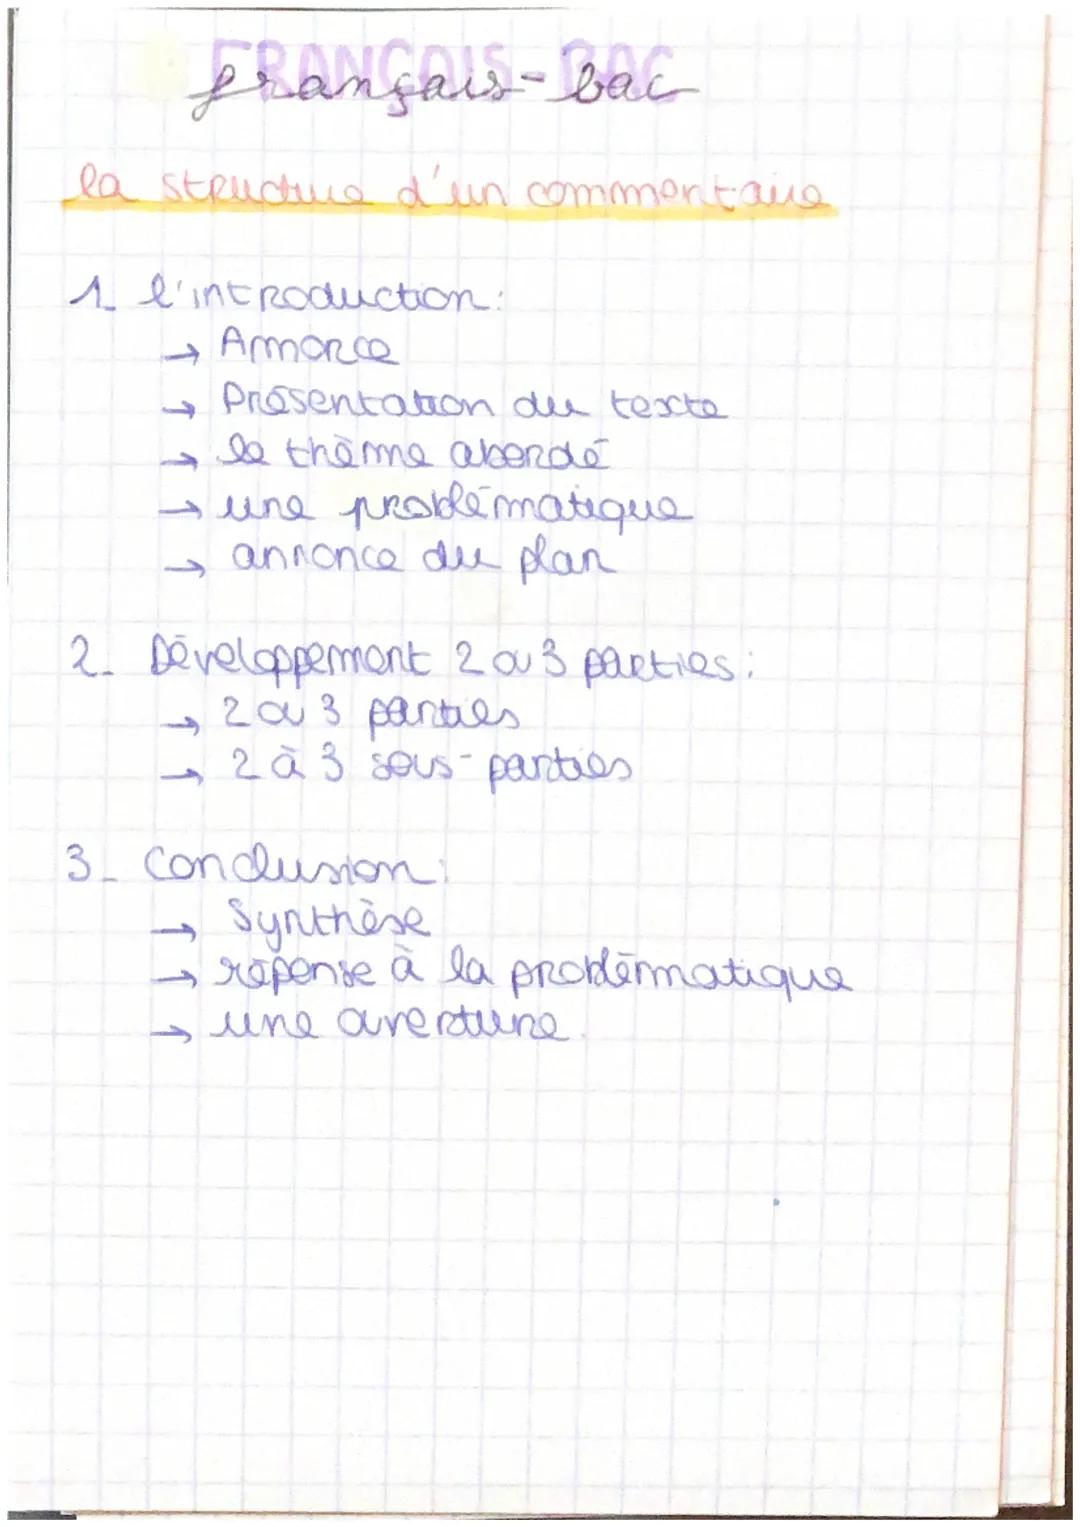 FRANÇAIS-BAC
français-bac
la structure d'un commentaire
1_ l'introduction:
→ Ammorce
→ Présentation du texte
→ le thème abordé
→ une problématique
→ annonce du plan
2_ Développement 2 ou 3 parties:
→ 2 ou 3 parties
→ 2 à 3 sous-parties
3_ Conclusion:
→ Synthèse
→ réponse à la problématique
→ une ouverture.